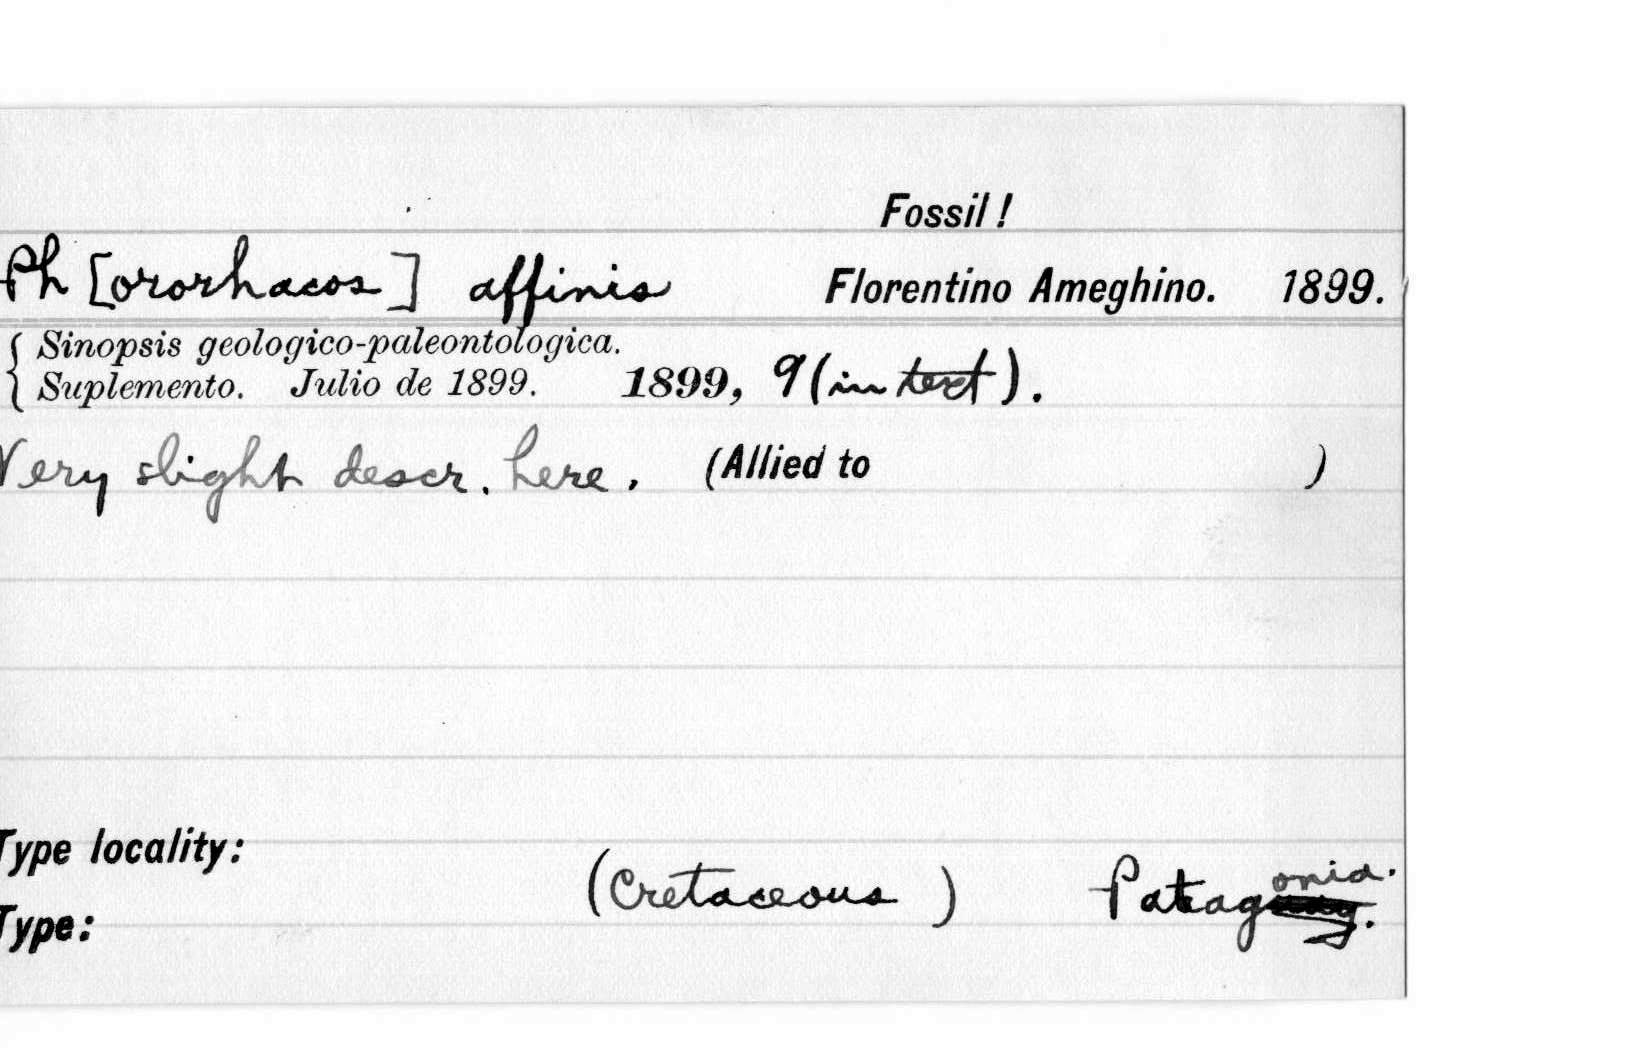 Fossil!
Ph [ororhacos] affinis Florentino Ameghino. 1899.
{ Sinopsis geologico-paleontologica.
Suplemento. Julio de 1899. 1899, 9 (in text).
Very slight descr. here. (Allied to )
Type locality:
(Cretaceous ) Patagonia.
Type: